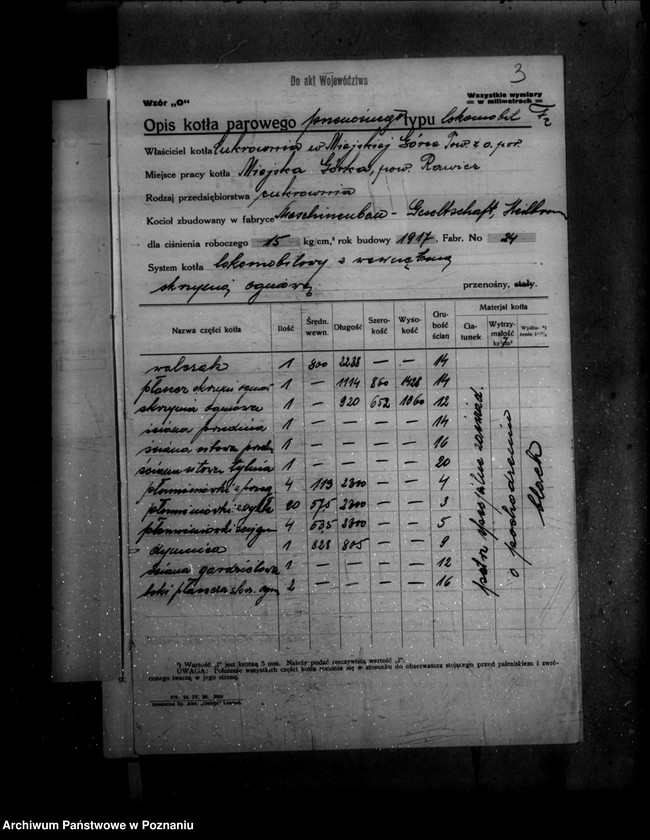 3
Do akt Województwa
Wzór „O"
Wszystkie wymiary
w milimetrach
Opis kotła parowego przenośnego typu lokomobil
Właściciel kotła Cukrownia w Miejskiej Górce Tow. z o. por.
Miejsce pracy kotła Miejska Górka, pow. Rawicz
Rodzaj przedsiębiorstwa cukrownia
Kocioł zbudowany w fabryce Maschinenbau - Gesellschaft, Heilbronn
dla ciśnienia roboczego 15 kg/cm,² rok budowy 1917. Fabr. No 24
System kotła lokomobilowy z wewnętrzną
skrzynią ogniową
przenośny, stały.
Nazwa części kotła Ilość Średn. wewn. Długość Szerokość Wysokość Grubość ścian Materjał kotła Gatunek Wytrzymałość kg/mm²
walczak 1 800 2238 — — 14
płaszcz skrzyni ogniow 1 — 1114 860 1428 14
skrzynia ogniowa 1 — 920 652 1060 12
ściana przednia 1 — — — — 14
ściana sitowa przed. 1 — — — — 16
ściana sitowa tylnia 1 — — — — 20
płomieniówki 4 113 2300 — — 4
płomieniówki zwykłe 20 57,5 2300 — — 3
płomieniówki 4 53,5 2300 — — 5
dymnica 1 828 805 — — 9
ściana gardzielowa 1 — — — — 12
boki płaszcza skrz. ogn 2 — — — — 16
patrz specjalne zaświad.
o pochodzeniu
blach
*) Wartość „l" jest krotną 5 mm. Należy podać rzeczywistą wartość „l".
UWAGA: Położenie wszystkich części kotła rozumie się w stosunku do obserwatora stojącego przed paleniskiem i zwróconego twarzą w jego stronę.
Archiwum Państwowe w Poznaniu